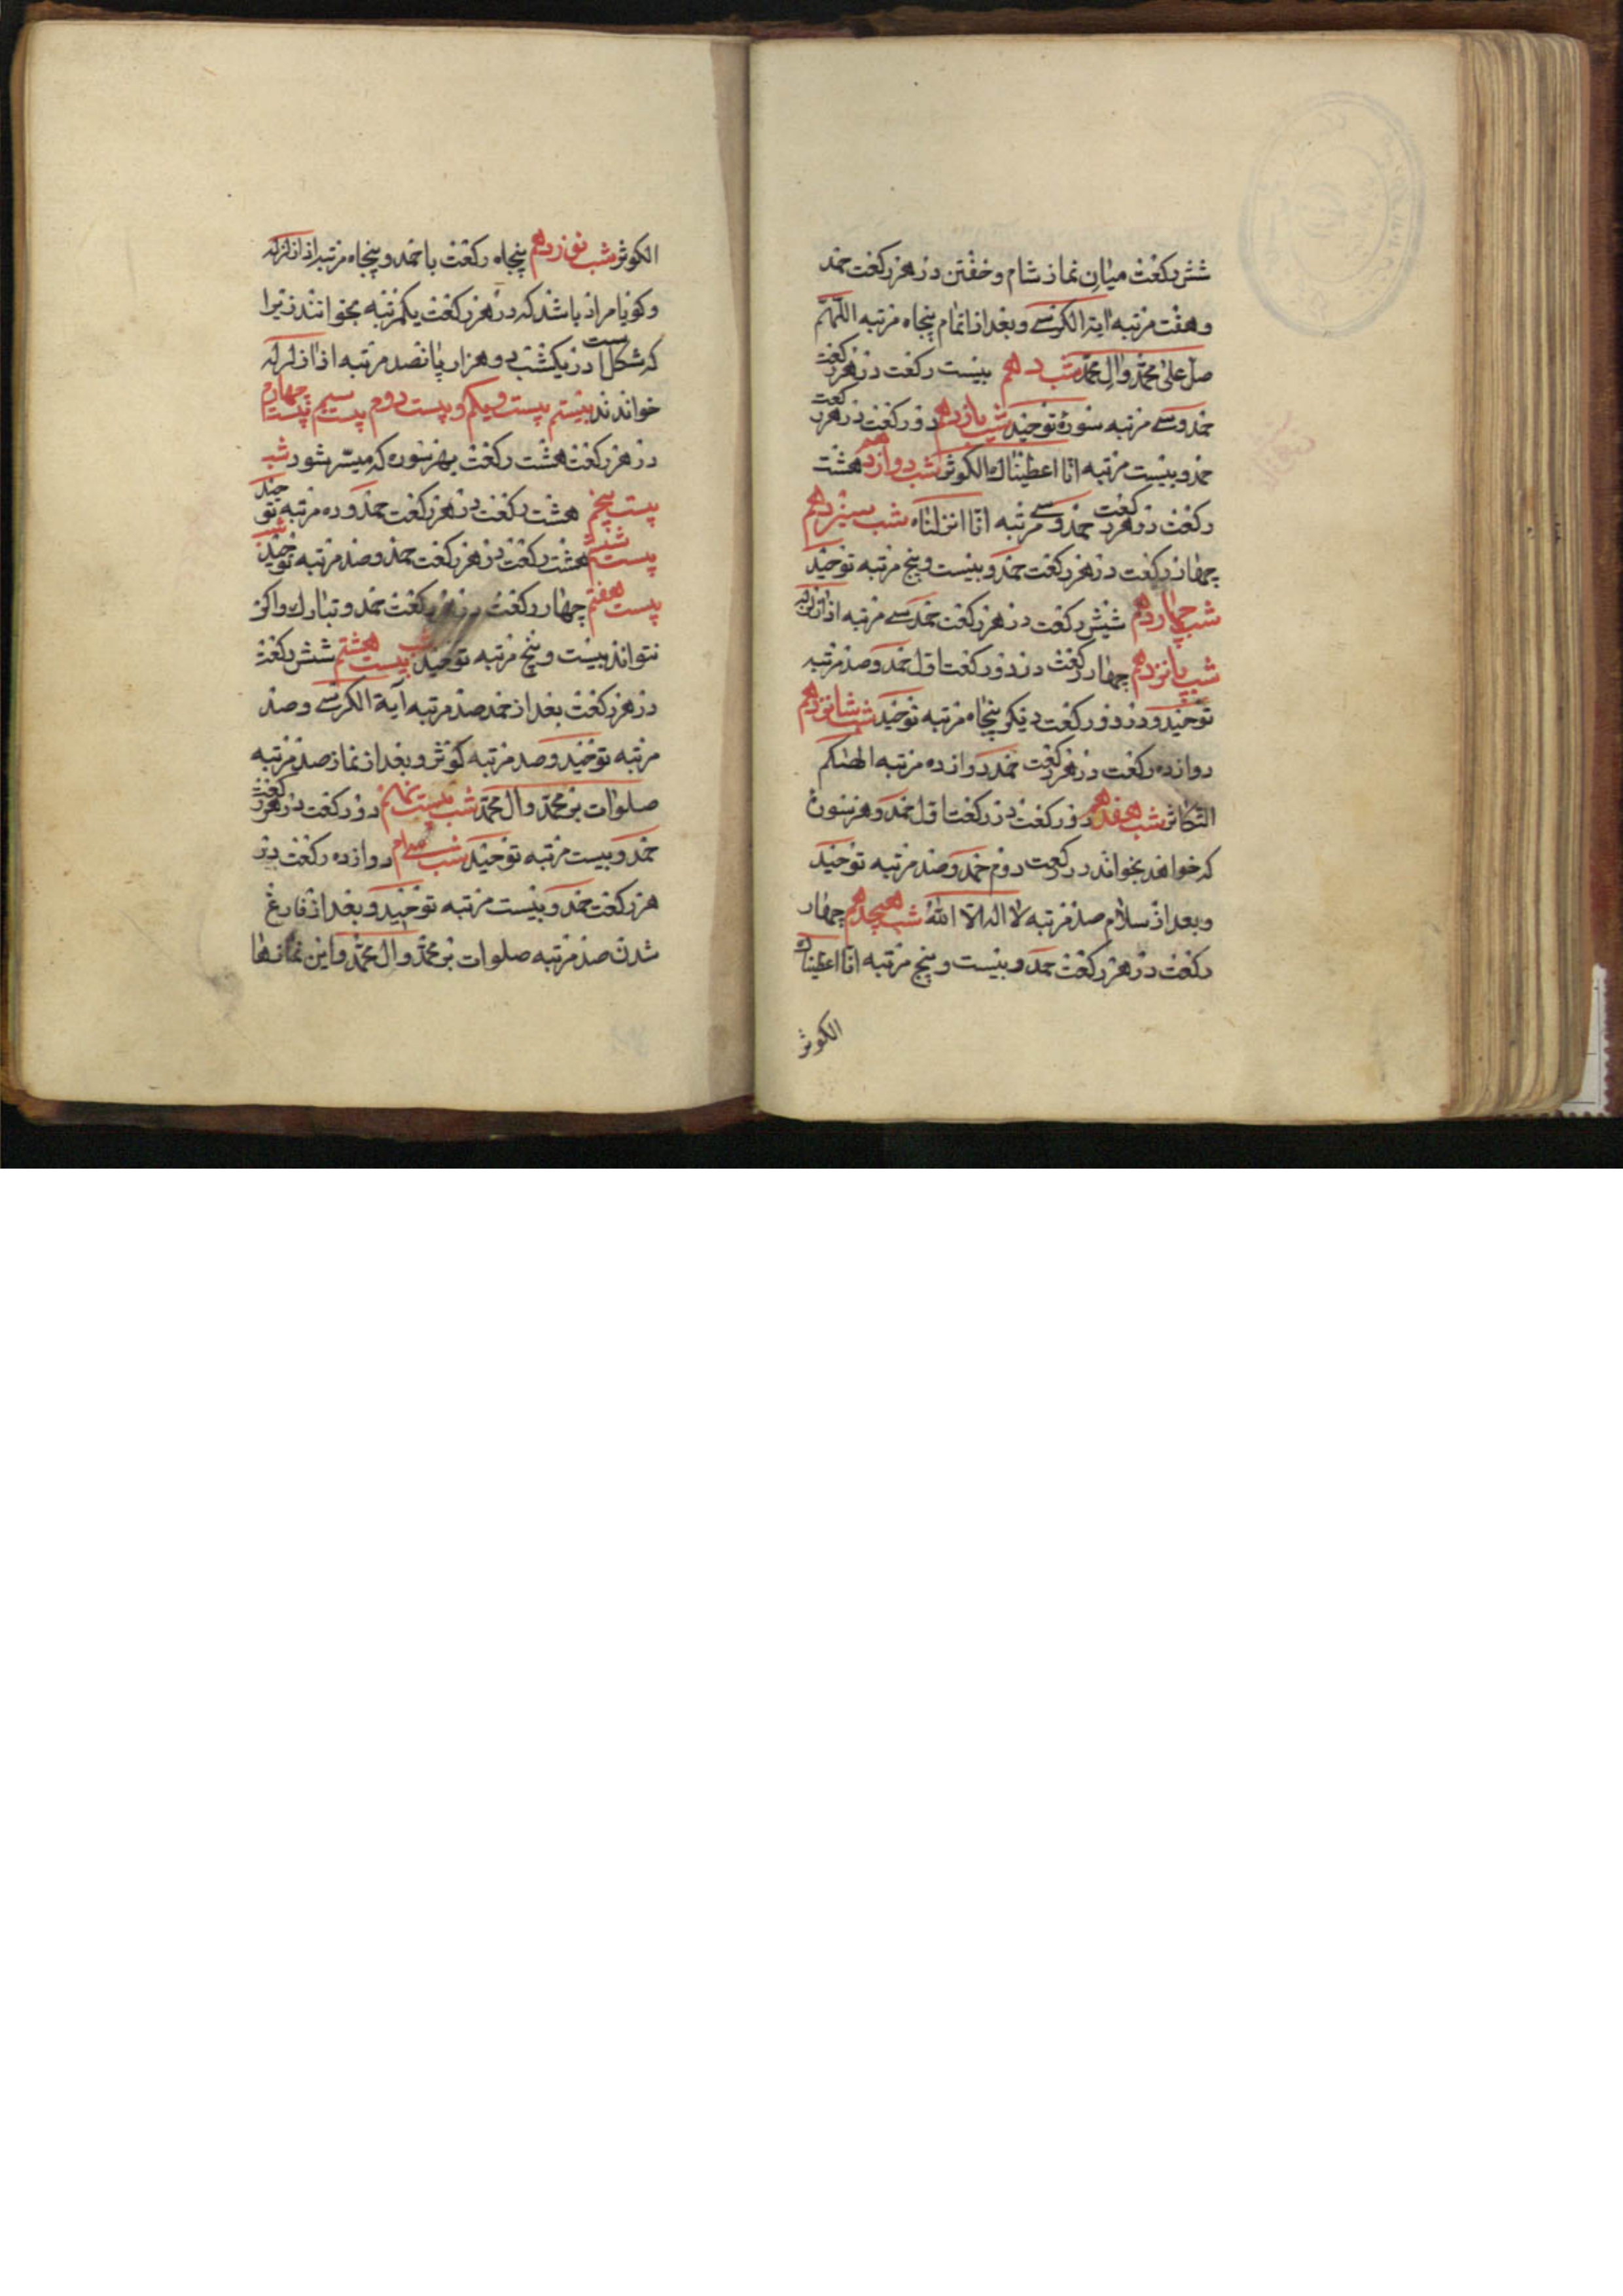 شش رکعت میان نماز شام و خفتن در هر رکعت حمد
و هفت مرتبه آیة الکرسی و بعد از اتمام پنجاه مرتبه اللهم
صل علی محمد وال محمد شب دهم بیست رکعت در هر رکعت
حمد و سی مرتبه سورهٔ توحید شب یازدهم دو رکعت در هر رکعت
حمد و بیست مرتبه انا اعطیناك الکوثر شب دوازدهم هشت
رکعت در هر رکعت حمد و سی مرتبه انا انزلناه شب سیزدهم
چهار رکعت در هر رکعت حمد و بیست و پنج مرتبه توحید
شب چهاردهم شش رکعت در هر رکعت حمد سی مرتبه اذا زلزله
شب پانزدهم چهار رکعت در دو رکعت اول حمد و صد مرتبه
توحید و در دو رکعت دیگر پنجاه مرتبه توحید شب شانزدهم
دوازده رکعت در هر رکعت حمد دوازده مرتبه الهٰکم
التکاثر شب هفدهم دو رکعت در رکعت اول حمد و هر سورهٔ
که خواهد بخواند در رکعت دوم حمد و صد مرتبه توحید
و بعد از سلام صد مرتبه لا اله الا الله شب هیجدهم چهار
رکعت در هر رکعت حمد و بیست و پنج مرتبه انا اعطیناك
الکوثر
الکوثر شب نوزدهم پنجاه رکعت با حمد و پنجاه مرتبه اذا زلزله
و کویا مراد باشد که در هر رکعت یکمرتبه بخوانند زیرا
که مشکل است در یکشب دو هزار پانصد مرتبه اذا زلزله
خواندند بیستم بیست ویکم و بیست دوم بیست سیم بیست چهارم
در هر رکعت هشت رکعت بهر سوره که میسر شود شب
بیست پنجم هشت رکعت در هر رکعت حمد و ده مرتبه توحید
شب بیست ششم هشت رکعت در هر رکعت حمد و صد مرتبه توحید
بیست هفتم چهار رکعت در هر رکعت حمد و تبارك واکر
نتواند بیست و پنج مرتبه توحید شب بیست هشتم شش رکعت
در هر رکعت بعد از حمد صد مرتبه آیة الکرسی و صد
مرتبه توحید و صد مرتبه کوثر و بعد از نماز صد مرتبه
صلوات بر محمد وال محمد شب بیست نهم دو رکعت در هر رکعت
حمد و بیست مرتبه توحید شب سی ام دوازده رکعت در
هر رکعت حمد و بیست مرتبه توحید و بعد از فارغ
شدن صد مرتبه صلوات بر محمد وال محمد و این نمازها